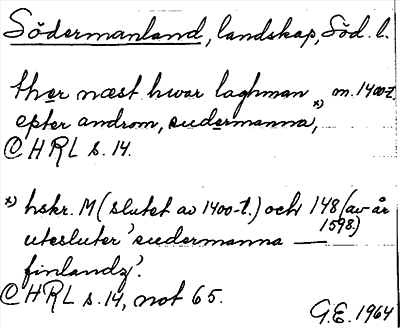 Södermanland, landskap, Söd. l.
ther næst hwar laghman *) m. 1400-t.
epter androm, sudermanna,
CHRL s. 14.
*) hskr. M (slutet av 1400-t.) och 148 (av år 1598.)
utesluter 'sudermanna —
finlandz'.
CHRL s. 14, not 65.
G.E. 1964